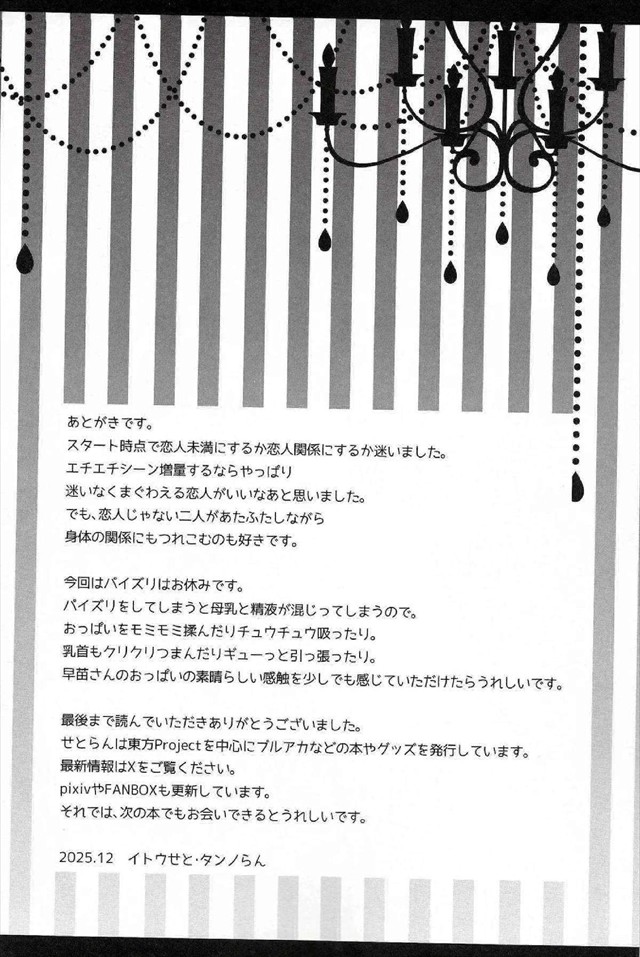 あとがきです。
スタート時点で恋人未満にするか恋人関係にするか迷いました。
エチエチシーン増量するならやっぱり
迷いなくまぐわえる恋人がいいなあと思いました。
でも、恋人じゃない二人があたふたしながら
身体の関係にもつれこむのも好きです。
今回はパイズリはお休みです。
パイズリをしてしまうと母乳と精液が混じってしまうので。
おっぱいをモミモミ揉んだりチュウチュウ吸ったり。
乳首もクリクリつまんだりギューっと引っ張ったり。
早苗さんのおっぱいの素晴らしい感触を少しでも感じていただけたらうれしいです。
最後まで読んでいただきありがとうございました。
せとらんは東方Projectを中心にブルアカなどの本やグッズを発行しています。
最新情報はXをご覧ください。
pixivやFANBOXも更新しています。
それでは、次の本でもお会いできるとうれしいです。
2025.12　イトウせと・タンノらん